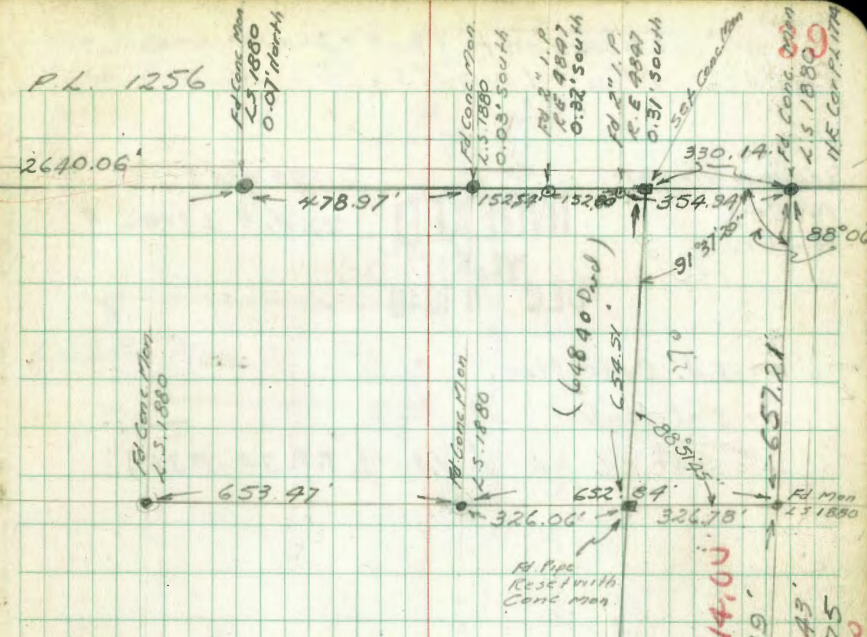 P.L. 1256
Fd Conc Mon
L.S. 1880
0.07' North
Fd Conc Mon.
L.S. 1880
0.03' South
Fd 2" I.P.
R.E 4847
0.32' South
Fd 2" I.P.
R.E 4847
0.31' South
Set Conc. Mon
Fd. Conc. Mon
L.S 1880
N.E. Cor. P.L. 1174
2640.06'
330.14
478.97'
152.54'
354.94'
91°31'
88°06
(648.40 Deed)
654.51'
657.21'
88°51'45"
Fd Conc Mon
L.S. 1880
Fd Conc Mon
L.S. 1880
653.47'
652.84'
326.06'
326.78'
Fd Mon
LS 1880
Fd. Pipe
Reset with
Conc mon.